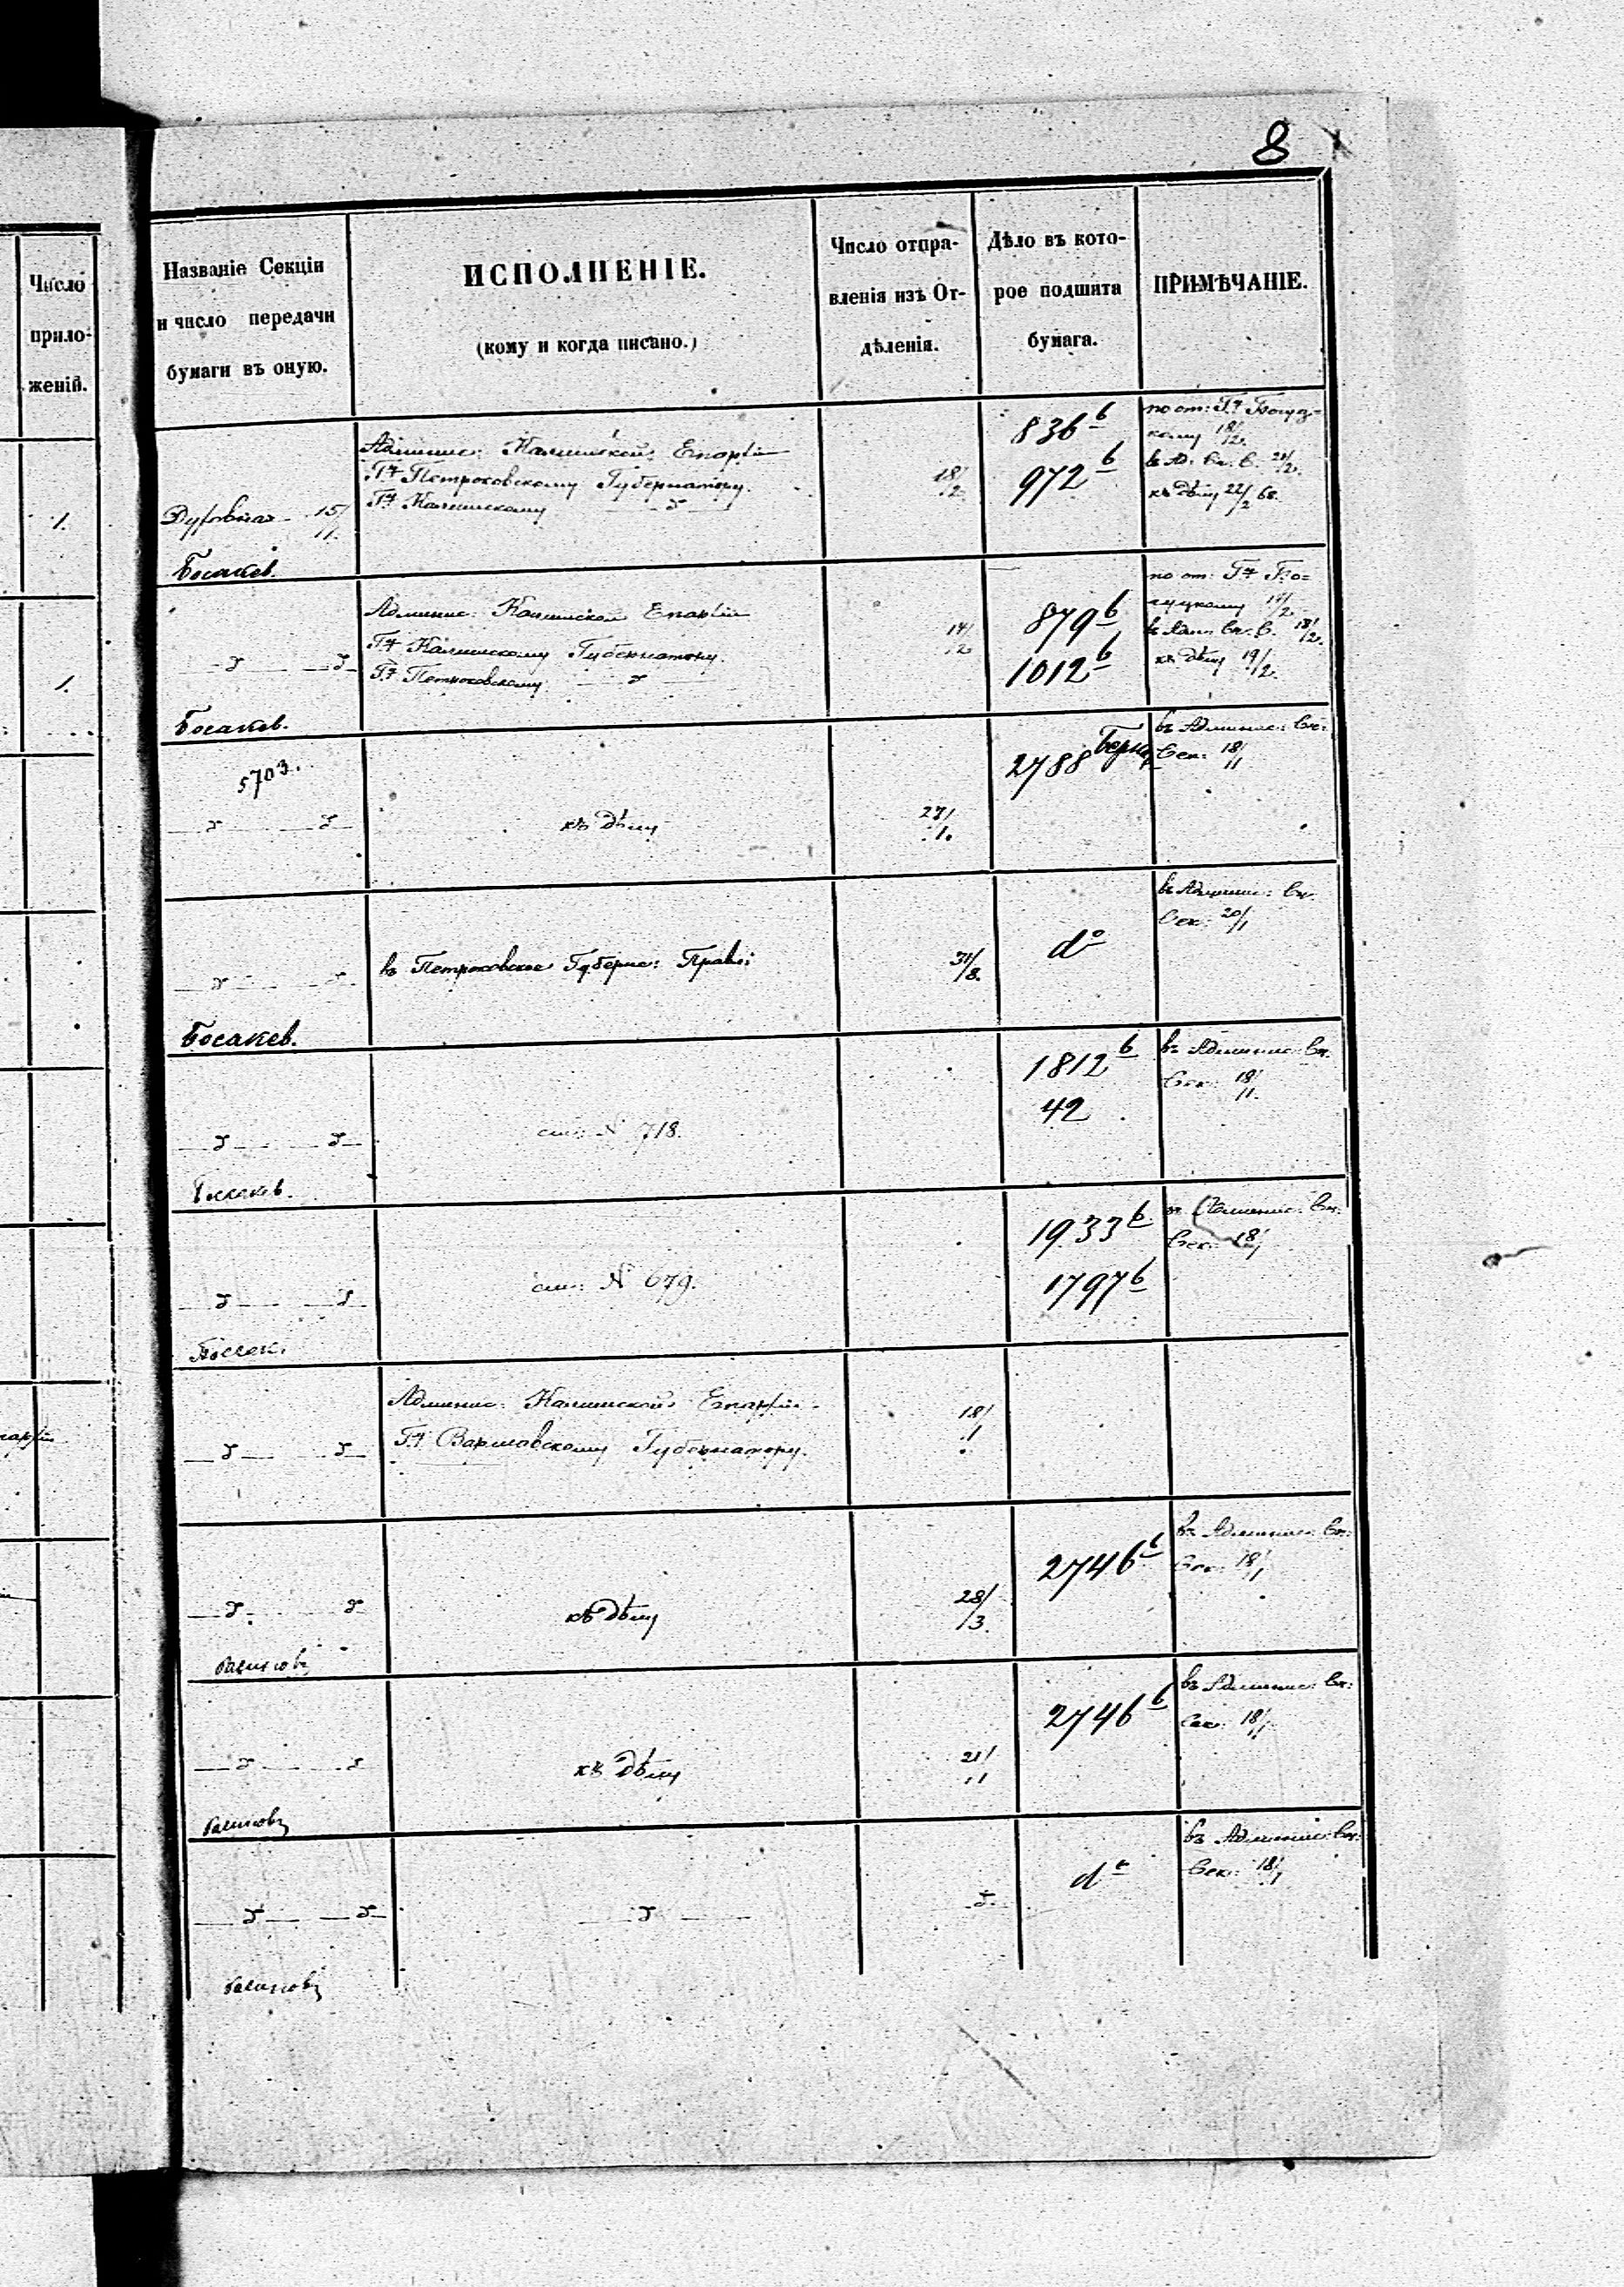 8
Число
прило-
женій.
Названіе Секціи
и число передачи
бумаги въ оную.
ИСПОЛНЕНІЕ.
(кому и когда писано.)
Число отпра-
вленія изъ От-
дѣленія.
Дѣло въ кото-
рое подшита
бумага.
ПРИМѢЧАНІЕ.
1.
Духовная 15/11.
Босакев.
Админис: Калишской Епархіи
Гну Петроковскому Губернатору.
Гну Калишскому
18/2
836 b
972 b
по от: Гну
18/2.
в Ад. Вн. С. 21/2.
къ дѣлу 22/2 68.
1.
Босакев.
Админис: Калишской Епархіи
Гну Калишскому Губернатору.
Гну Петроковскому
14/2
879 b
1012 b
по от: Гну
в Адм. Вн. С. 18/2.
къ дѣлу 19/2.
5703.
къ дѣлу
27/1.
2788
въ Админис: Вн:
Сек: 18/11
Босакев.
в Петроковское Губерн: Правл:
31/8.
do
въ Админис: Вн.
Сек: 20/1
Босакев.
см: N 718.
1812 b
42
въ Админис: Вн.
Сек: 18/11.
Боссак.
см: N 679.
1933 b
1797 b
въ Админис: Вн:
Сек: 18/1
Админис: Калишской Епархіи
Гну Варшавскому Губернатору.
18/1
къ дѣлу
28/3.
2746 b
въ Админис: Вн:
Сек: 18/1
къ дѣлу
21/1
2746 b
въ Админис: Вн:
Сек: 18/1
do
въ Админис: Вн:
Сек: 18/1